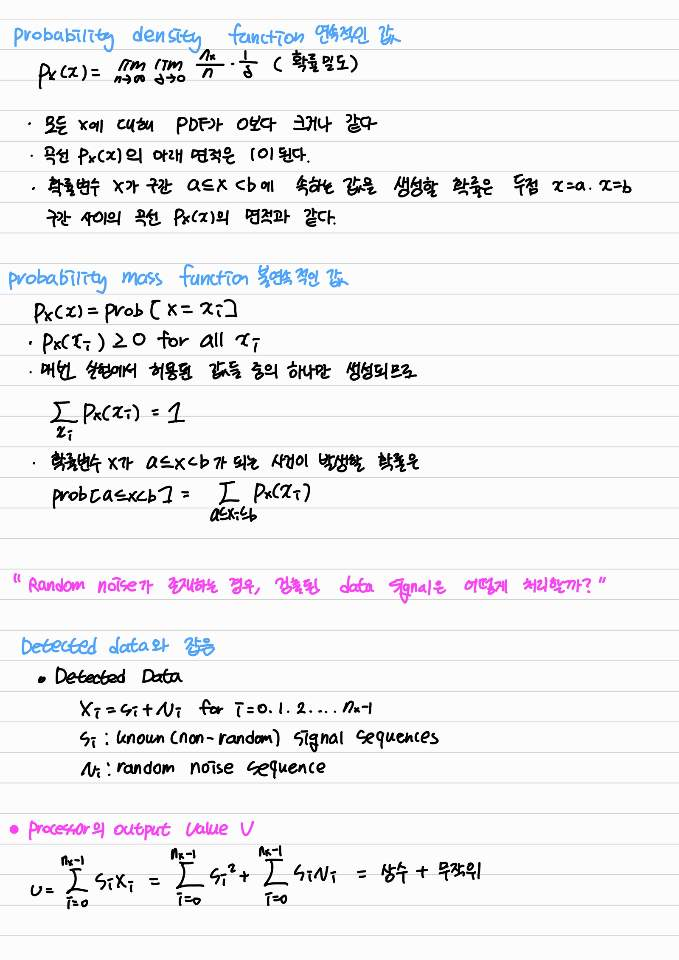 probability density function 연속적인 값
Px(x) = lim n→∞ lim d→0 nx/n · 1/d ( 확률밀도)
· 모든 x에 대해 PDF가 0보다 크거나 같다
· 곡선 Px(x)의 아래 면적은 1이 된다.
· 확률변수 x가 구간 a≤x<b에 속하는 값을 생성할 확률은 두점 x=a. x=b
구간 사이의 곡선 Px(x)의 면적과 같다.
probability mass function 불연속적인 값
Px(x) = prob [ x = xi ]
· Px(xi) ≥ 0 for all xi
· 매번 실험에서 허용된 값들 중의 하나만 생성되므로
∑xi Px(xi) = 1
· 확률변수 x가 a≤x<b가 되는 사건이 발생할 확률은
prob[a≤x<b] = ∑a≤xi≤b Px(xi)
" Random noise가 존재하는 경우, 검출된 data signal은 어떻게 처리할까? "
Detected data와 잡음
• Detected Data
Xi = si + Ni for i=0.1.2.... nx-1
si : known (non-random) signal sequences
Ni : random noise sequence
• Processor의 output value U
U = ∑i=0 nx-1 siXi = ∑i=0 nx-1 si² + ∑i=0 nx-1 siNi = 상수 + 무작위